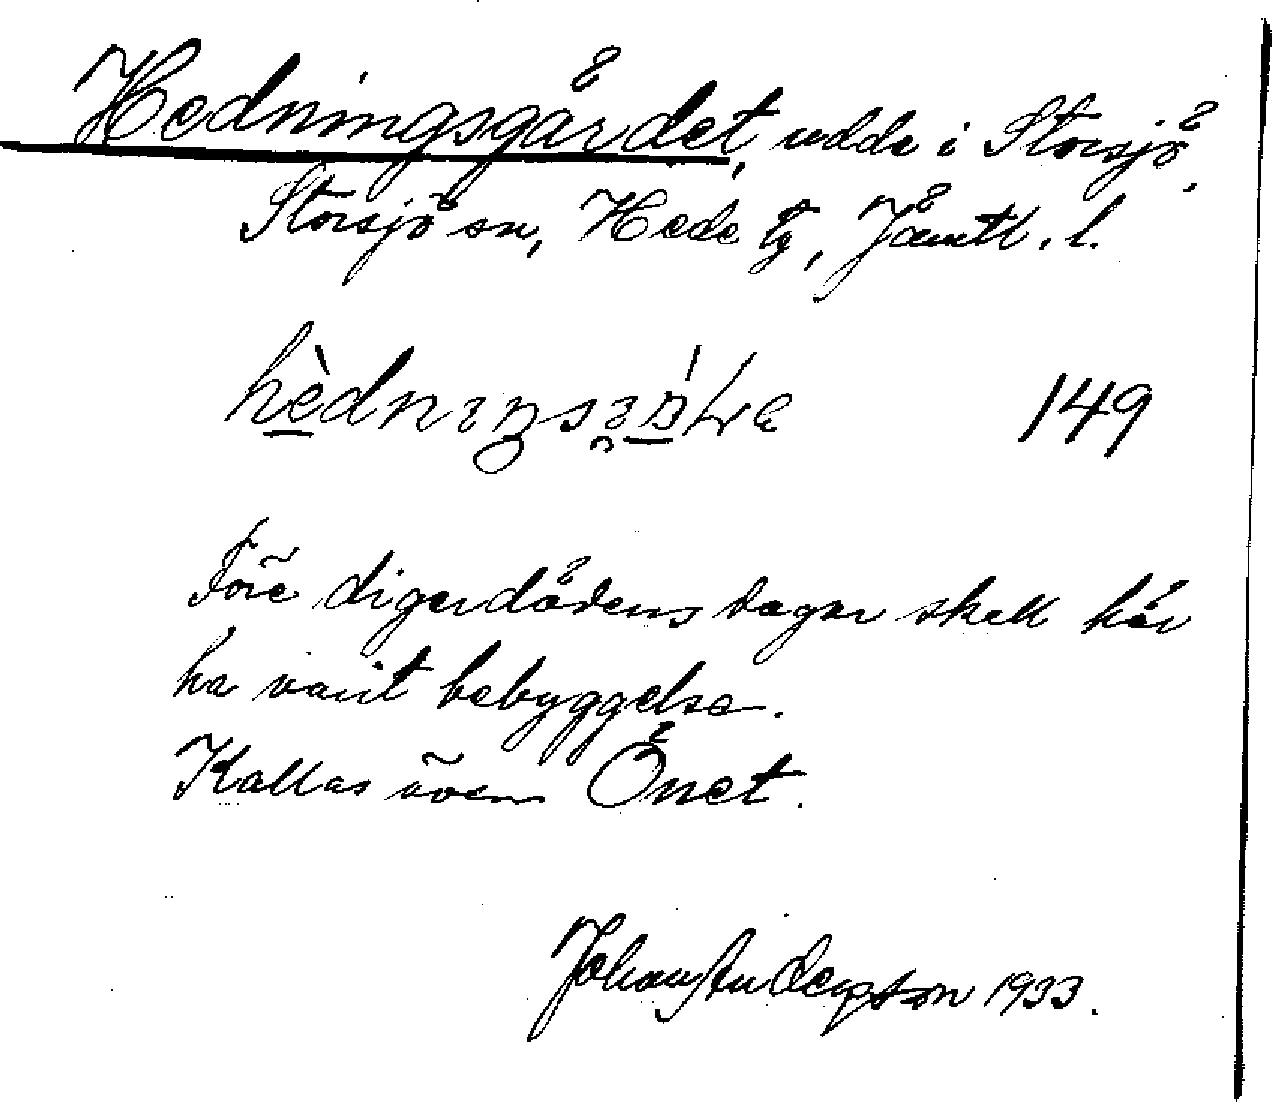 Hedningsgärdet, udde i Storsjö,
Storsjö sn, Hede tg, Jämtl. l.
149
Före digerdödens dagar skall här
ha varit bebyggelse.
Kallas även Önet.
Johan Anderson 1933.